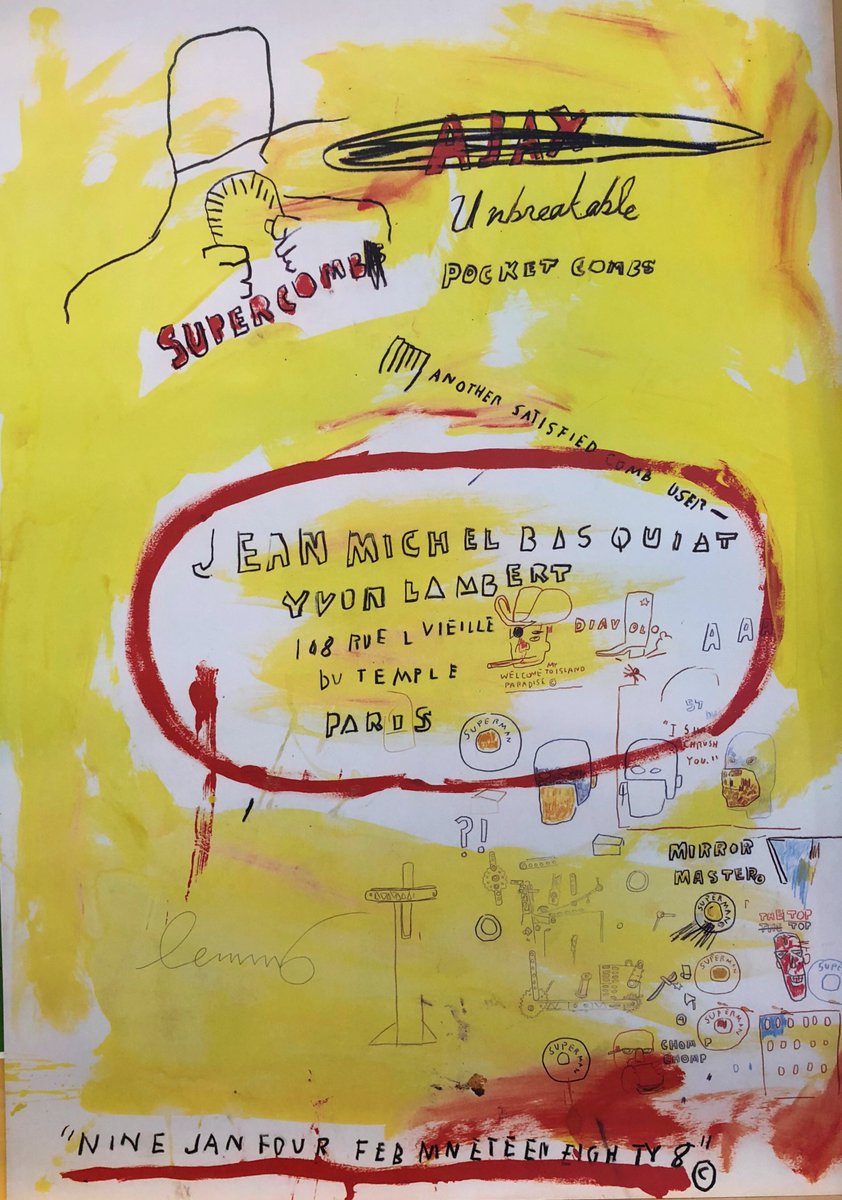 AJAX
Unbreakable
POCKET COMBS
SUPERCOMB
ANOTHER SATISFIED COMB USER—
JEAN MICHEL BASQUIAT
YVON LAMBERT
108 RUE VIEILLE
DU TEMPLE
PARIS
DIAVOLO
A A
MY
WELCOME TO ISLAND
PARADISE ©
SUPERMAN
"I SH
CHRUSH
YOU."
?!
MIRROR
MASTER©
SUPERMAN
THE TOP
THE TOP
SUPERMAN
SUPE
SUPERMAN
CHOMP
CHOMP
SUPERMAN
"NINE JAN FOUR FEB NINETEEN EIGHTY 8" ©